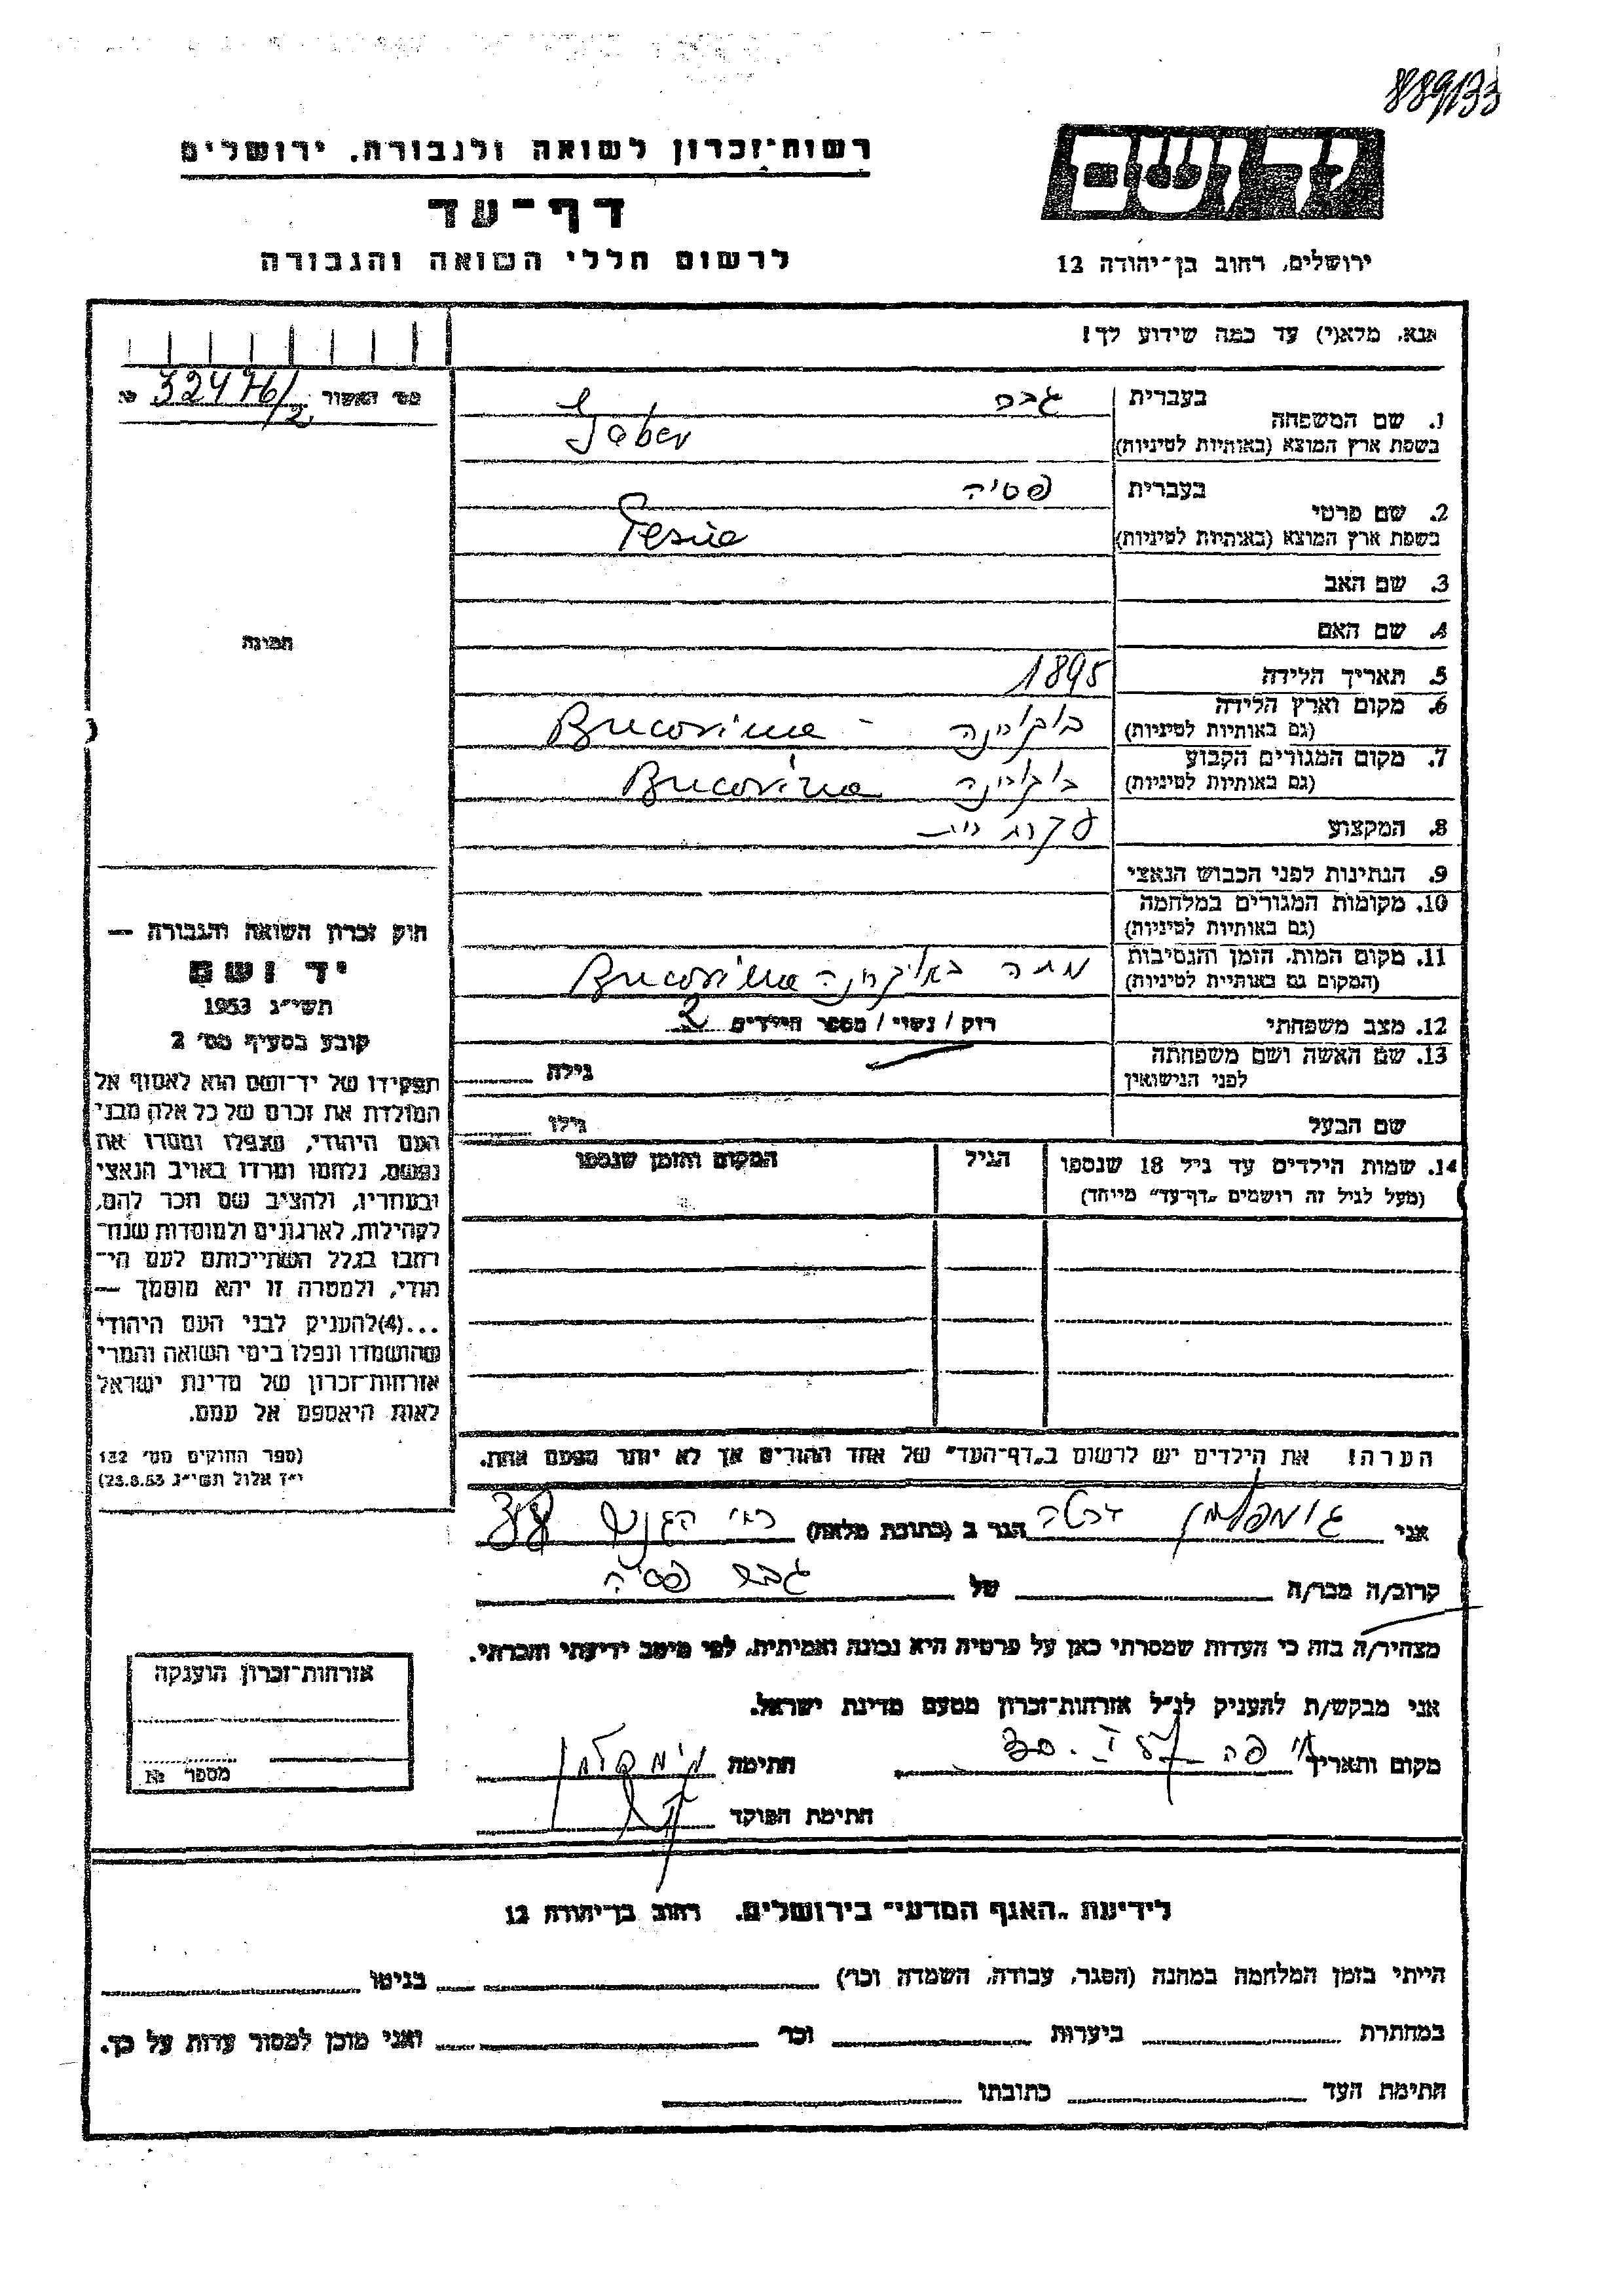 889/33
רשות־זכרון לשואה ולגבורה, ירושלים
דף־עד
לרשום חללי השואה והגבורה
יד ושם
ירושלים, רחוב בן־יהודה 12
אנא, מלא(י) עד כמה שידוע לך!
מס׳ האשור № 32476/2
1. שם המשפחה
בעברית
בשפת ארץ המוצא (באותיות לטיניות)
2. שם פרטי
בעברית פסיה
בשפת ארץ המוצא (באותיות לטיניות) Pesia
3. שם האב
4. שם האם
תמונה
5. תאריך הלידה 1895
6. מקום וארץ הלידה
(גם באותיות לטיניות) בוקווינה - Bucovina
7. מקום המגורים הקבוע
(גם באותיות לטיניות) בוקווינה Bucovina
8. המקצוע עקרת בית
9. הנתינות לפני הכבוש הנאצי
10. מקומות המגורים במלחמה
(גם באותיות לטיניות)
11. מקום המות, הזמן והנסיבות
(המקום גם באותיות לטיניות) מתה Bucovina
12. מצב משפחתי רוק / נשוי / מספר הילדים 2
13. שם האשה ושם משפחתה
לפני הנישואין גילה
שם הבעל גילו
14. שמות הילדים עד גיל 18 שנספו
(מעל לגיל זה רושמים „דף־עד״ מיוחד)
הגיל
המקום והזמן שנספו
חוק זכרון השואה והגבורה —
יד ושם
תשי״ג 1953
קובע בסעיף מס׳ 2
תפקידו של יד־ושם הוא לאסוף אל
המולדת את זכרם של כל אלה מבני
העם היהודי, שנפלו ומסרו את
נפשם, נלחמו ומרדו באויב הנאצי
ובעוזריו, ולהציב שם וזכר להם,
לקהילות, לארגונים ולמוסדות שנח־
רבו בגלל השתייכותם לעם הי־
הודי, ולמטרה זו יהא מוסמך —
...(4)להעניק לבני העם היהודי
שהושמדו ונפלו בימי השואה והמרי
אזרחות־זכרון של מדינת ישראל
לאות היאספם אל עמם.
(ספר החוקים מס׳ 132
י״ז אלול תשי״ג 28.8.53)
הערה! את הילדים יש לרשום ב„דף־העד״ של אחד ההורים אך לא יותר מפעם אחת.
אני הגר ב (כתובת מלאה)
קרוב/ה מכר/ה של פסיה
מצהיר/ה בזה כי העדות שמסרתי כאן על פרטיה היא נכונה ואמיתית, לפי מיטב ידיעתי והכרתי.
אני מבקש/ת להעניק לנ״ל אזרחות־זכרון מטעם מדינת ישראל.
מקום ותאריך חיפה חתימה
חתימת הפוקד
אזרחות־זכרון הוענקה
מספר №
לידיעת „האגף המדעי״ בירושלים, רחוב בן־יהודה 12
הייתי בזמן המלחמה במחנה (הסגר, עבודה, השמדה וכו׳) בגיטו
במחתרת ביערות וכו׳ ואני מוכן למסור עדות על כך.
חתימת העד כתובתו